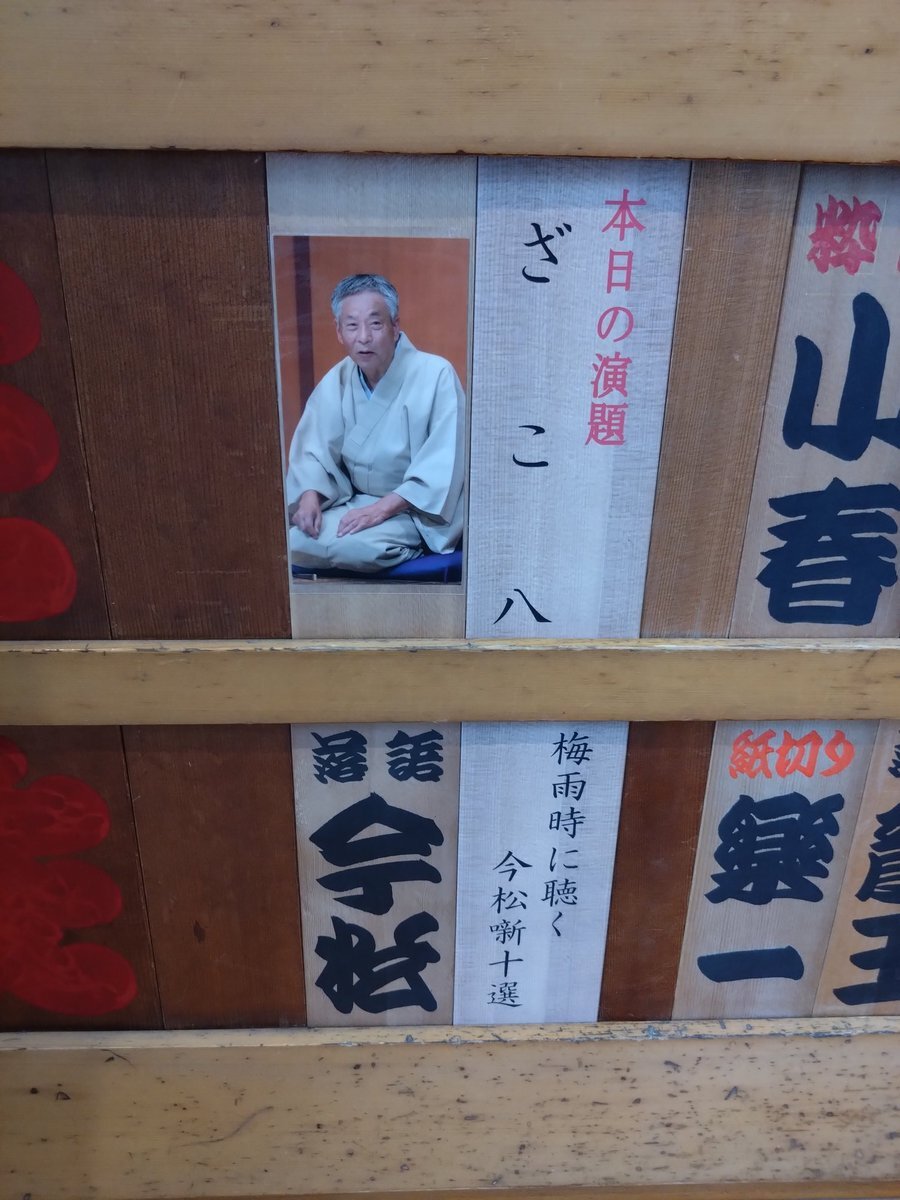 粋
小春
本日の演題
ざこ八
紙切り
樂一
梅雨時に聴く
今松噺十選
落語
今松